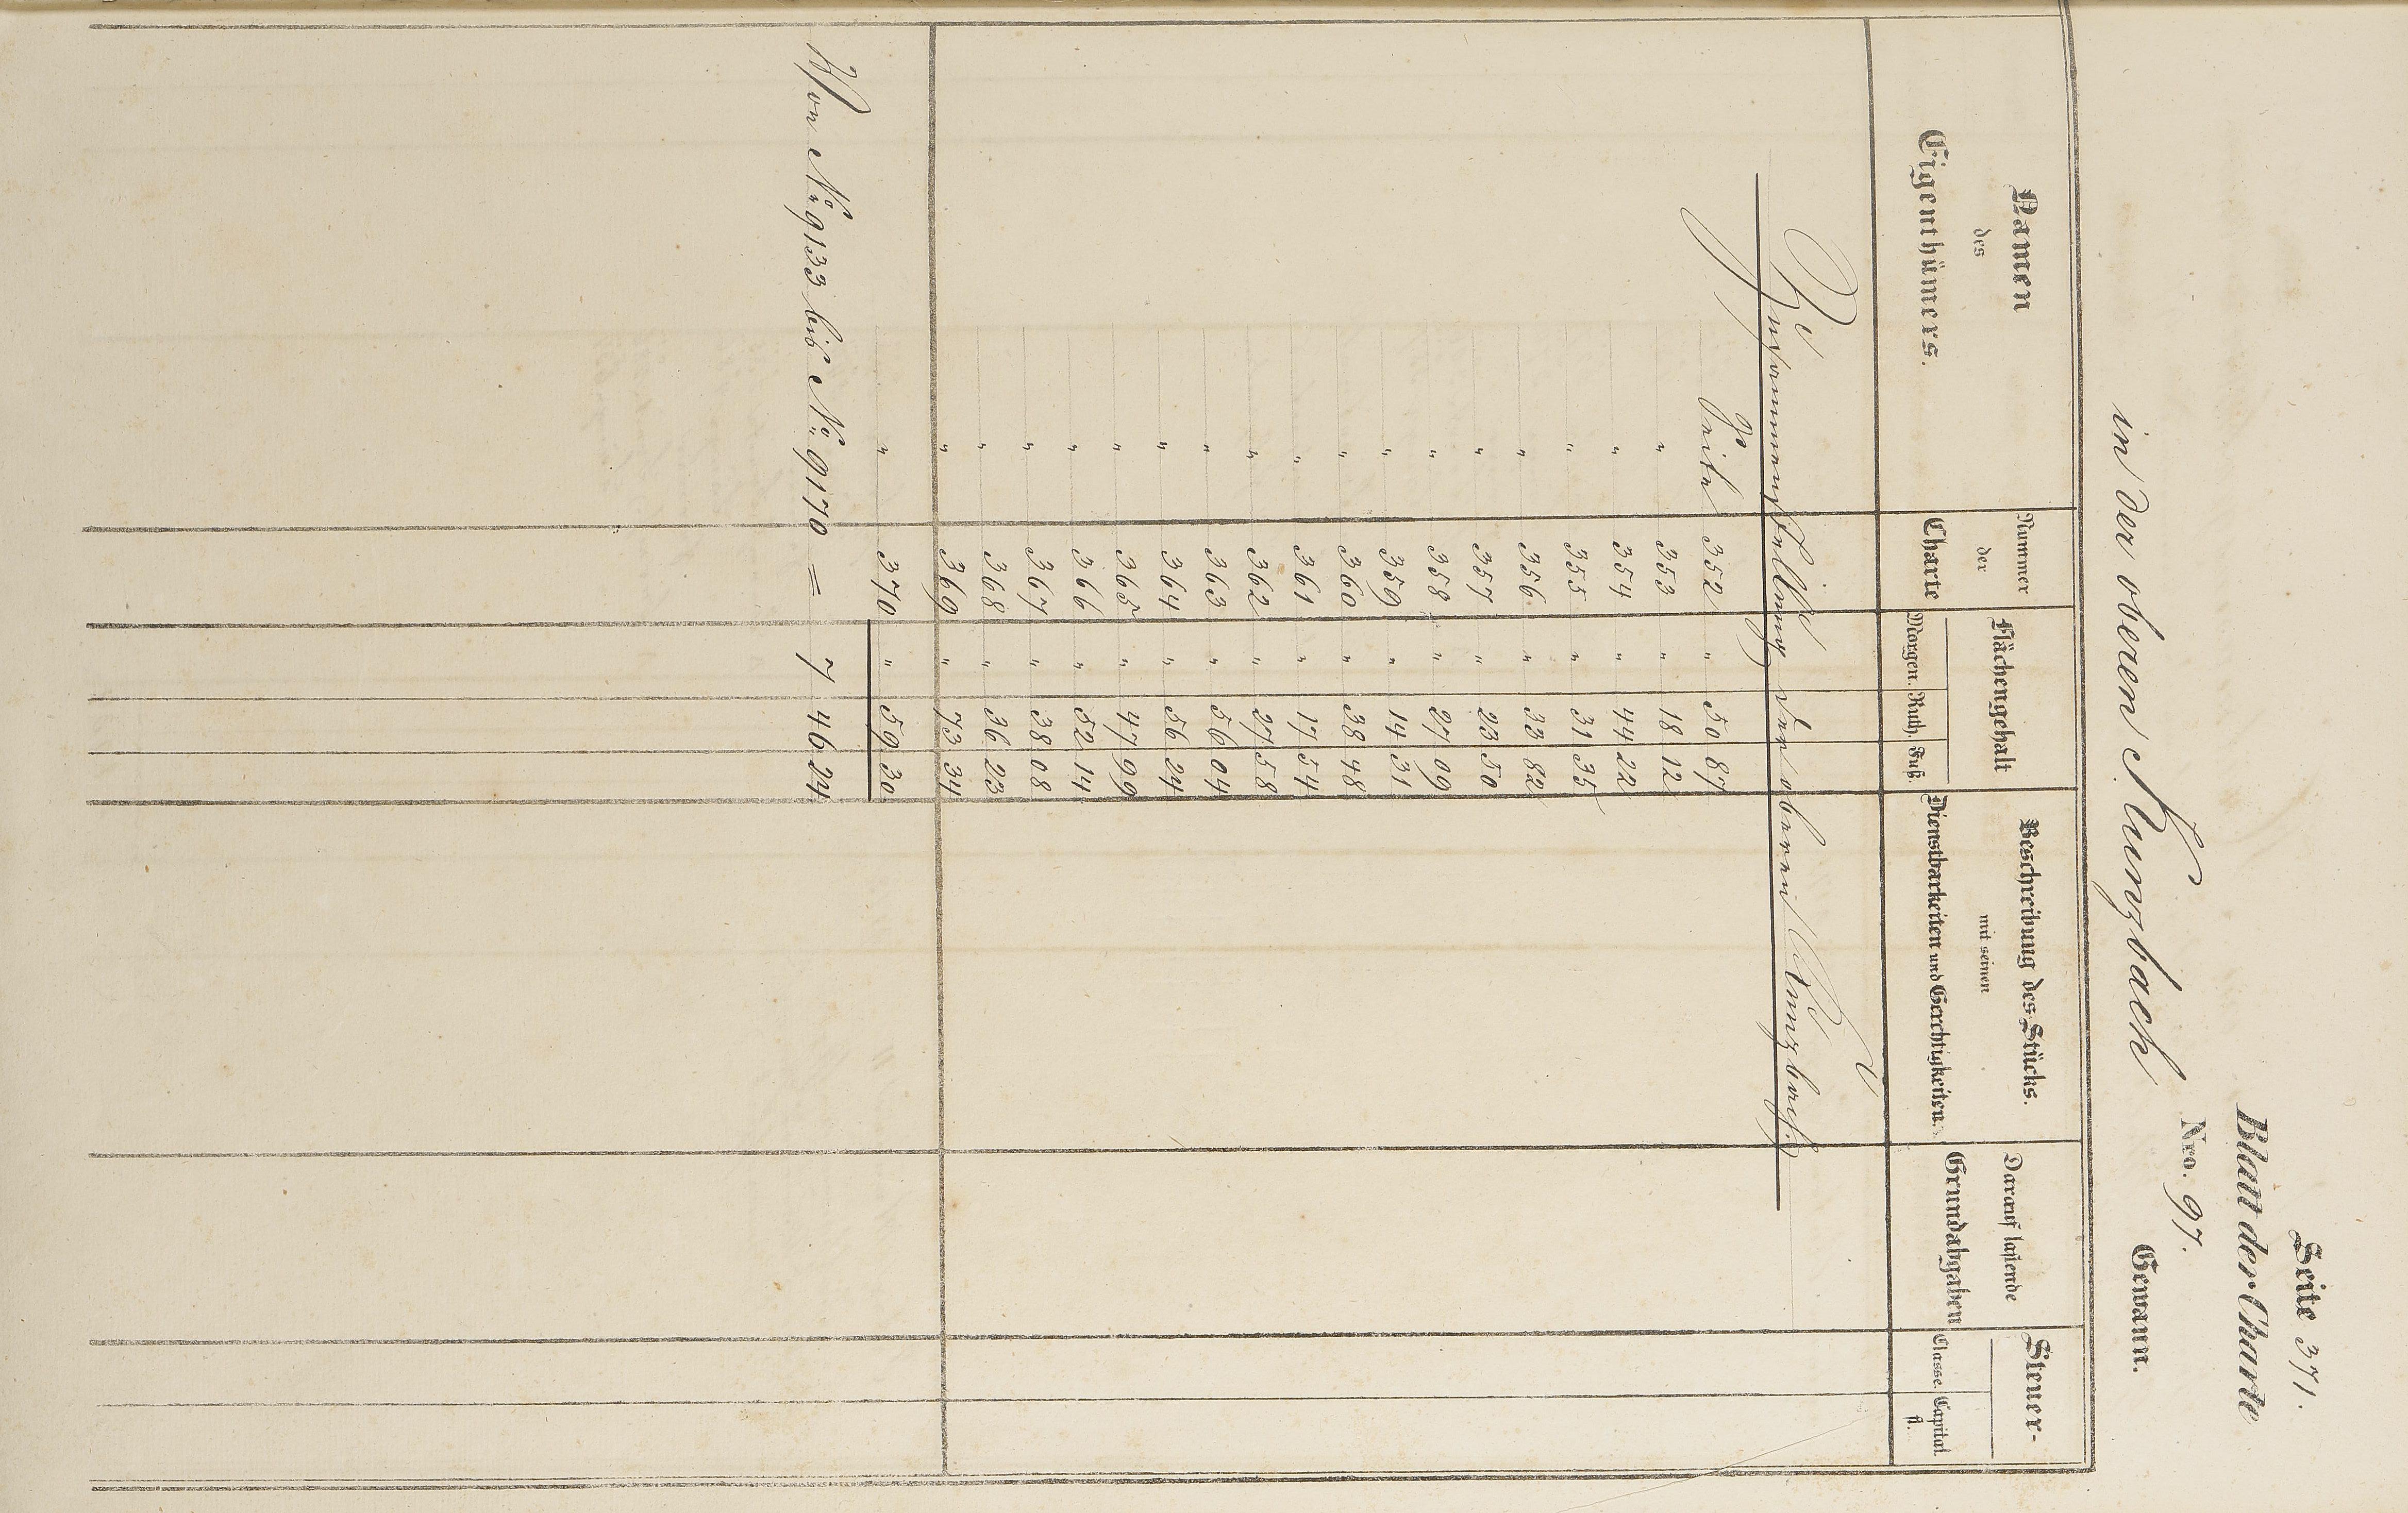 Seite 371.
Blatt der Charte
Nro. 97.
in der oberen Kunzbach Gewann.
Namen des Eigenthümers.
Nummer der Charte
Flächengehalt
Morgen. Ruth. Fuß.
Beschreibung des Stücks. mit seinen Dienstbarkeiten und Gerechtigkeiten.
Darauf lastende Grundabgaben
Steuer-
Classe. Capital. fl.
Zusammenstellung der oberen Kunzbach.
Seite 352 " 50 87
" 353 " 18 12
" 354 " 44 22
" 355 " 31 35
" 356 " 33 82
" 357 " 23 50
" 358 " 27 09
" 359 " 14 31
" 360 " 38 48
" 361 " 17 54
" 362 " 27 58
" 363 " 56 04
" 364 " 56 24
" 365 " 47 99
" 366 " 52 14
" 367 " 38 08
" 368 " 36 23
" 369 " 73 34
" 370 " 59 30
Von No. 9133 bis No. 9170 = 7 46 24